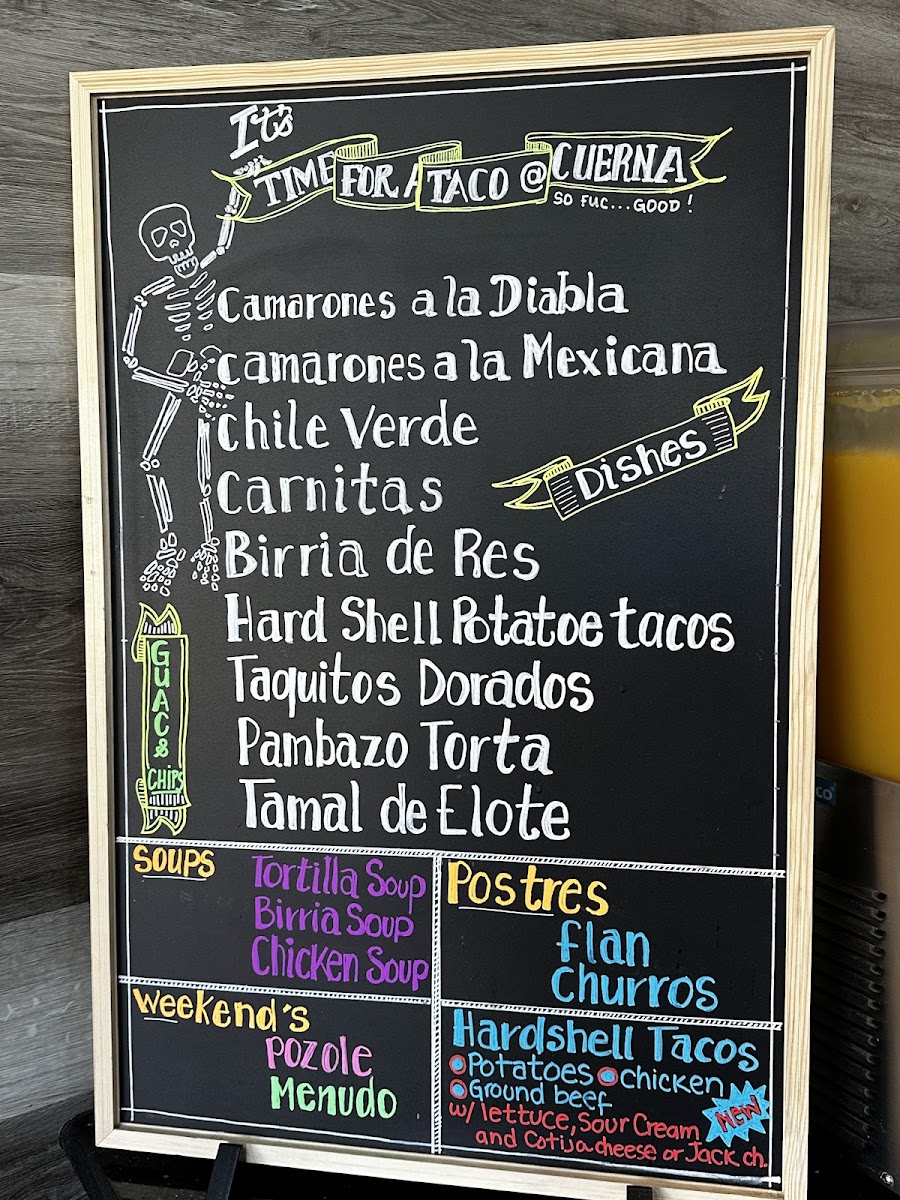 It's
TIME FOR A TACO @ CUERNA
SO FUC...GOOD!
Camarones a la Diabla
camarones a la Mexicana
Chile Verde
Dishes
Carnitas
Birria de Res
Hard Shell Potatoe tacos
Taquitos Dorados
Pambazo Torta
Tamal de Elote
GUAC &
CHIPS
SOUPS
Tortilla Soup
Birria Soup
Chicken Soup
Postres
flan
Churros
Weekend's
POZOLE
Menudo
Hardshell Tacos
Potatoes Chicken
Ground beef
NEW
w/ lettuce, Sour Cream
and Cotija cheese or Jack ch.